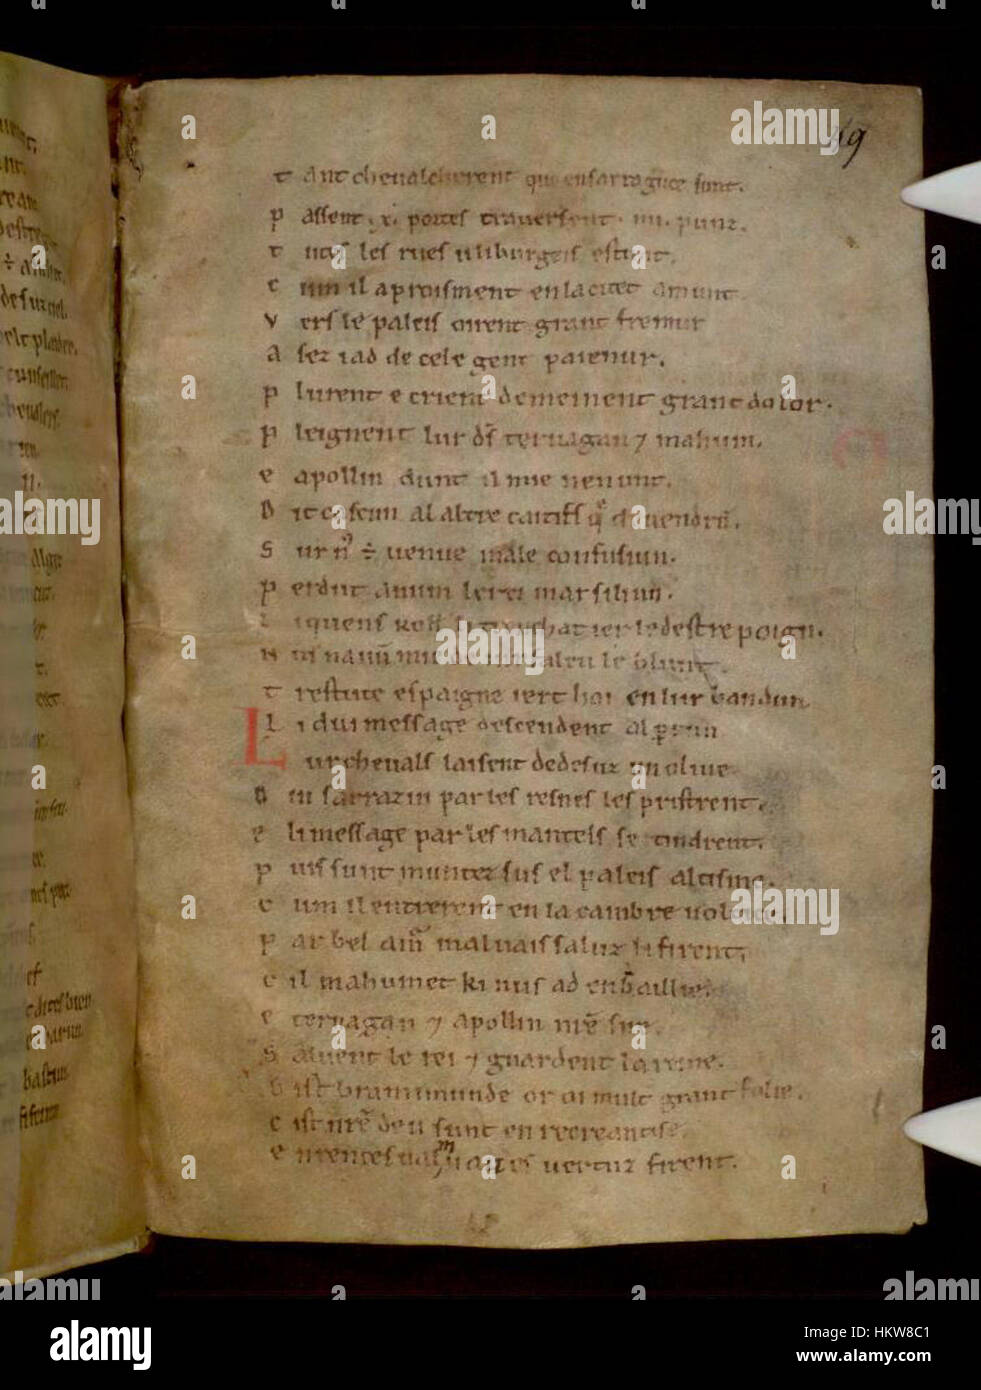 49
t ant chevalcherent que en sarraguce sunt.
p assent .x. portes traversent .iiii. punz.
t utes les rues u li burgeis estunt.
c um il aproisment en la citet amunt
v ers le paleis oirent grant fremur
a sez i ad de cele gent paienur.
p lurent e crient demeinent grant dolor.
p leignent lur ds tervagan 7 mahum.
e apollin dunt il mie nen unt.
d it cascun al altre caitifs q devendrũ.
s ur nꝰ ÷ venue male confusiun.
p erdut avum le rei marsiliun.
l i quens roll li trenchat ier le destre poign.
n us navũ mie de jurfaleu le blunt.
t restute espaigne iert hoi en lur bandun.
L i dui message descendent al perun
L ur chevals laisent dedesuz un olive
d ui sarrazin par les resnes les pristrent.
e li message par les mantels se tindrent.
p uis sunt muntez sus el paleis altisme.
c um il entrerent en la cambre voltice.
p ar bel amũ malvais saluz li firent.
c il mahumet ki nus ad en baillie.
e tervagan 7 apollin nr̃e sire.
s alvent le rei 7 guardent la reine.
d ist bramimunde or oi mult grant folie.
c ist nr̃e deu sunt en recreantise.
e n rencesval m vaises vertuz firent.
a alamy stock photo
HKW8C1
www.alamy.com